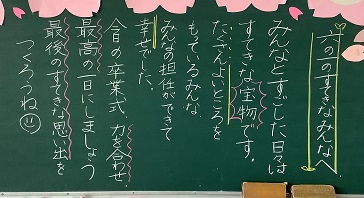 六の一のすてきなみんなへ
みんなとすごした日々は
すてきな宝物です。
たくさんよいところを
もっているみんな
みんなの担任ができて
幸せでした。
今日の卒業式、力を合わせ、
最高の一日にしましょう
最後のすてきな思い出を
つくろうね